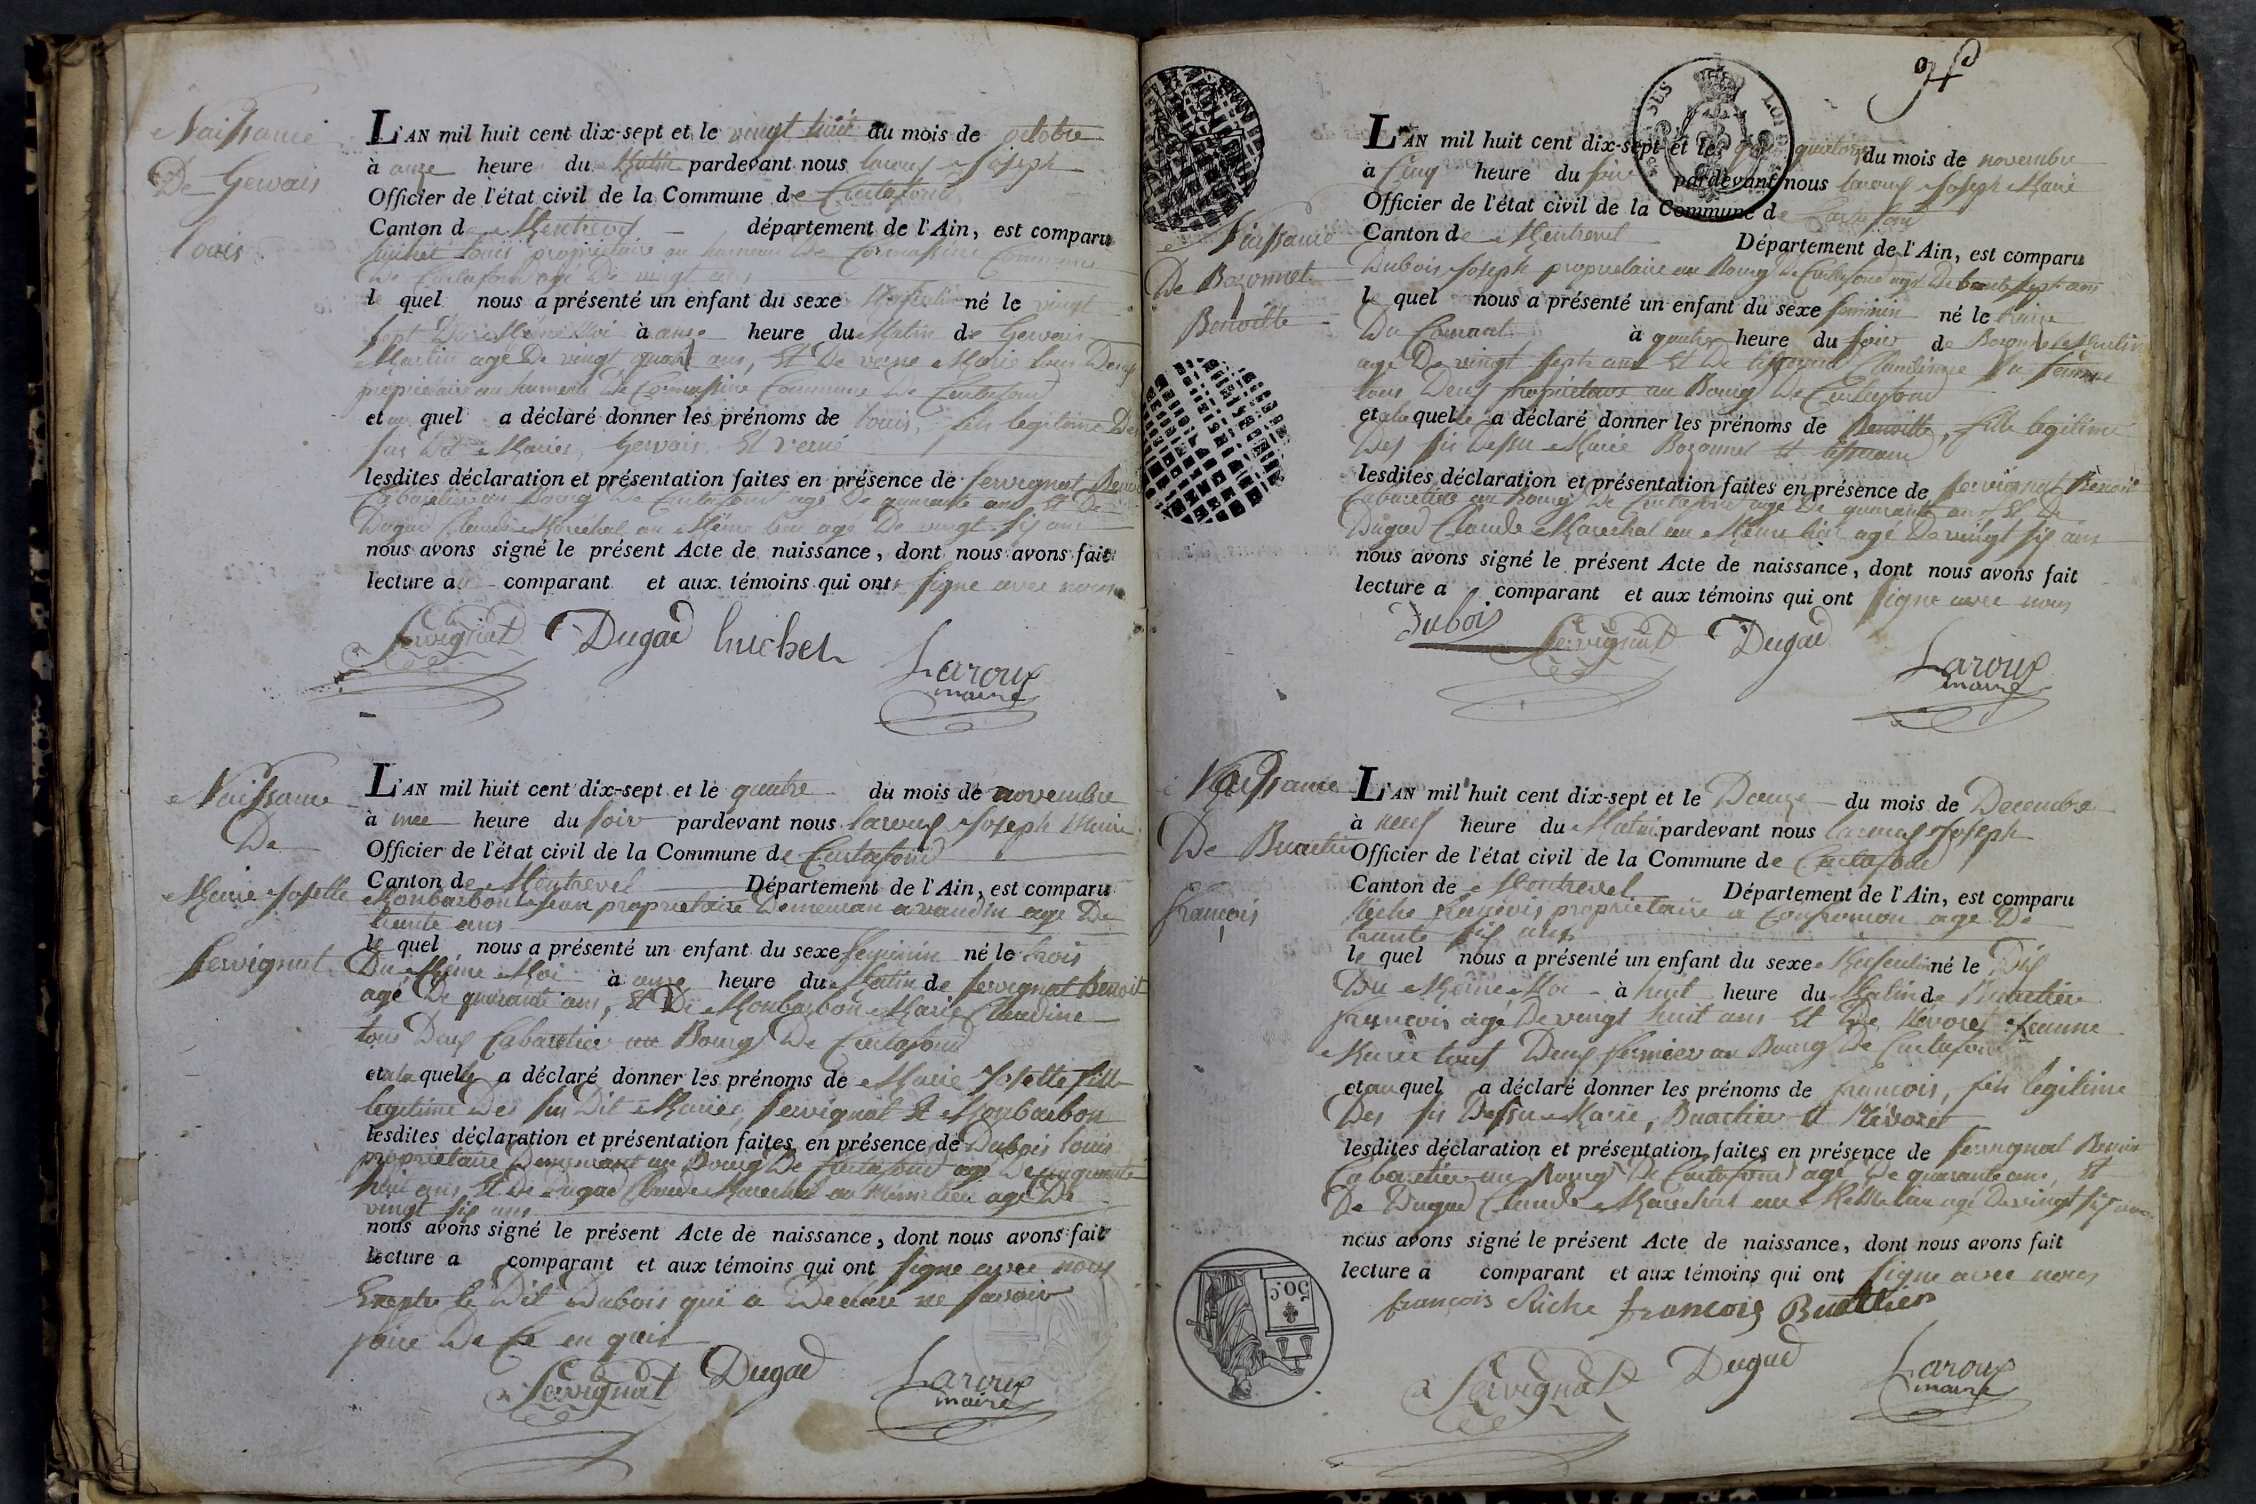 Naissance
De Gervais
Louis
L'AN mil huit cent dix-sept et le vingt huit du mois de octobre
à onze heure du Matin pardevant nous laroux Joseph
Officier de l'état civil de la Commune de Curtafond
Canton de Montrevel département de l'Ain, est comparu
huchet Louis propriétaire au hameau De Cormassine Commune
De Curtafond agé De vingt ans
le quel nous a présenté un enfant du sexe Masculin né le vingt
sept Du Même Moi à onze heure du Matin de Gervais
Martin agé De vingt quatre ans, Et De verne Marie tous Deux
propriétaire au hameau De Cormassine Commune De Curtafond
et au quel a déclaré donner les prénoms de Louis, fils legitime Des
sus Dit Mariés, Gervais Et verne
lesdites déclaration et présentation faites en présence de servignat Benoit
Cabaretier au Bourg De Curtafond agé De quarante ans Et De
Dugad Claude Maréchal au Même lieu agé De vingt six ans
nous avons signé le présent Acte de naissance, dont nous avons fait
lecture au comparant et aux témoins qui ont signe avec nous
Servignat Dugad huchet
Laroux
maire
Naissance
De
Marie Josette
servignat
L'AN mil huit cent dix-sept et le quatre du mois de novembre
à une heure du soir pardevant nous laroux Joseph Maire
Officier de l'état civil de la Commune de Curtafond
Canton de Montrevel Département de l'Ain, est comparu
Monbarbon Jean propriétaire Demeuran a vandin agé De
trente ans
le quel nous a présenté un enfant du sexe feminin né le trois
Du Même Moi à onze heure du Matin de servignat Benoit
agé De quarante ans, Et De Monbarbon Marie Claudine
tous Deux Cabaretier au Bourg De Curtafond
et a la quelle a déclaré donner les prénoms de Marie Josette fille
legitime Des sus Dit Mariés, servignat Et Monbarbon
lesdites déclaration et présentation faites en présence de Dubois Louis
propriétaire Demeurant au Bourg De Curtafond agé De cinquante
huit ans Et De Dugad Claude Marechal au Même lieu agé De
vingt six ans
nous avons signé le présent Acte de naissance, dont nous avons fait
lecture a comparant et aux témoins qui ont signe avec nous
Excepte le Dit Dubois qui a Declaré ne savoir
faire De Ce en quis
Servignat Dugad
Laroux
maire
SES LOI
Naissance
De Bozonnet
Benoitte
L'AN mil huit cent dix-sept et le quatorze du mois de novembre
à Cinq heure du soir pardevant nous laroux Joseph Marie
Officier de l'état civil de la Commune de Curtafond
Canton de Montrevel Département de l'Ain, est comparu
Dubois Joseph propriétaire au Bourg De Curtafond agé De trente sept ans
le quel nous a présenté un enfant du sexe feminin né le treize
Du Courant à quatre heure du soir de Bozonnet Martin
agé De vingt septs ans Et De Claudinne Sa femme
tous Deux propriétaire au Bourg De Curtafond
et a la quelle a déclaré donner les prénoms de Benoitte, fille legitime
Des sis Dessu Marié Bozonnet Et
lesdites déclaration et présentation faites en présence de servignat Benoit
Cabaretier au Bourg De Curtafond agé De quarante ans Et De
Dugad Claude Marechal au Même lieu agé De vingt six ans
nous avons signé le présent Acte de naissance, dont nous avons fait
lecture a comparant et aux témoins qui ont signe avec nous
Dubois Servignat Dugad
Laroux
maire
Naissance
De Buactier
françois
L'AN mil huit cent dix-sept et le Douze du mois de Decembre
à neuf heure du Matin pardevant nous laroux Joseph
Officier de l'état civil de la Commune de Curtafond
Canton de Montrevel Département de l'Ain, est comparu
Riche françois propriétaire a Confrancon agé De
trente six ans
le quel nous a présenté un enfant du sexe Masculin né le Dix
Du Même Moi à huit heure du Matin de Buactier
françois agé De vingt huit ans Et De Revoret Jeanne
Marie tous Deux fermier au Bourg De Curtafond
et au quel a déclaré donner les prénoms de françois, fils legitime
Des sis Dessu Marie, Buactier Et Révoret
lesdites déclaration et présentation faites en présence de servignat Benoit
Cabaretier au Bourg De Curtafond agé De quarante ans, Et
De Dugad Claude Marechal au Même lieu agé De vingt six ans
nous avons signé le présent Acte de naissance, dont nous avons fait
lecture a comparant et aux témoins qui ont signe avec nous
françois Riche françois Buattier
Servignat Dugad
Laroux
maire
50c